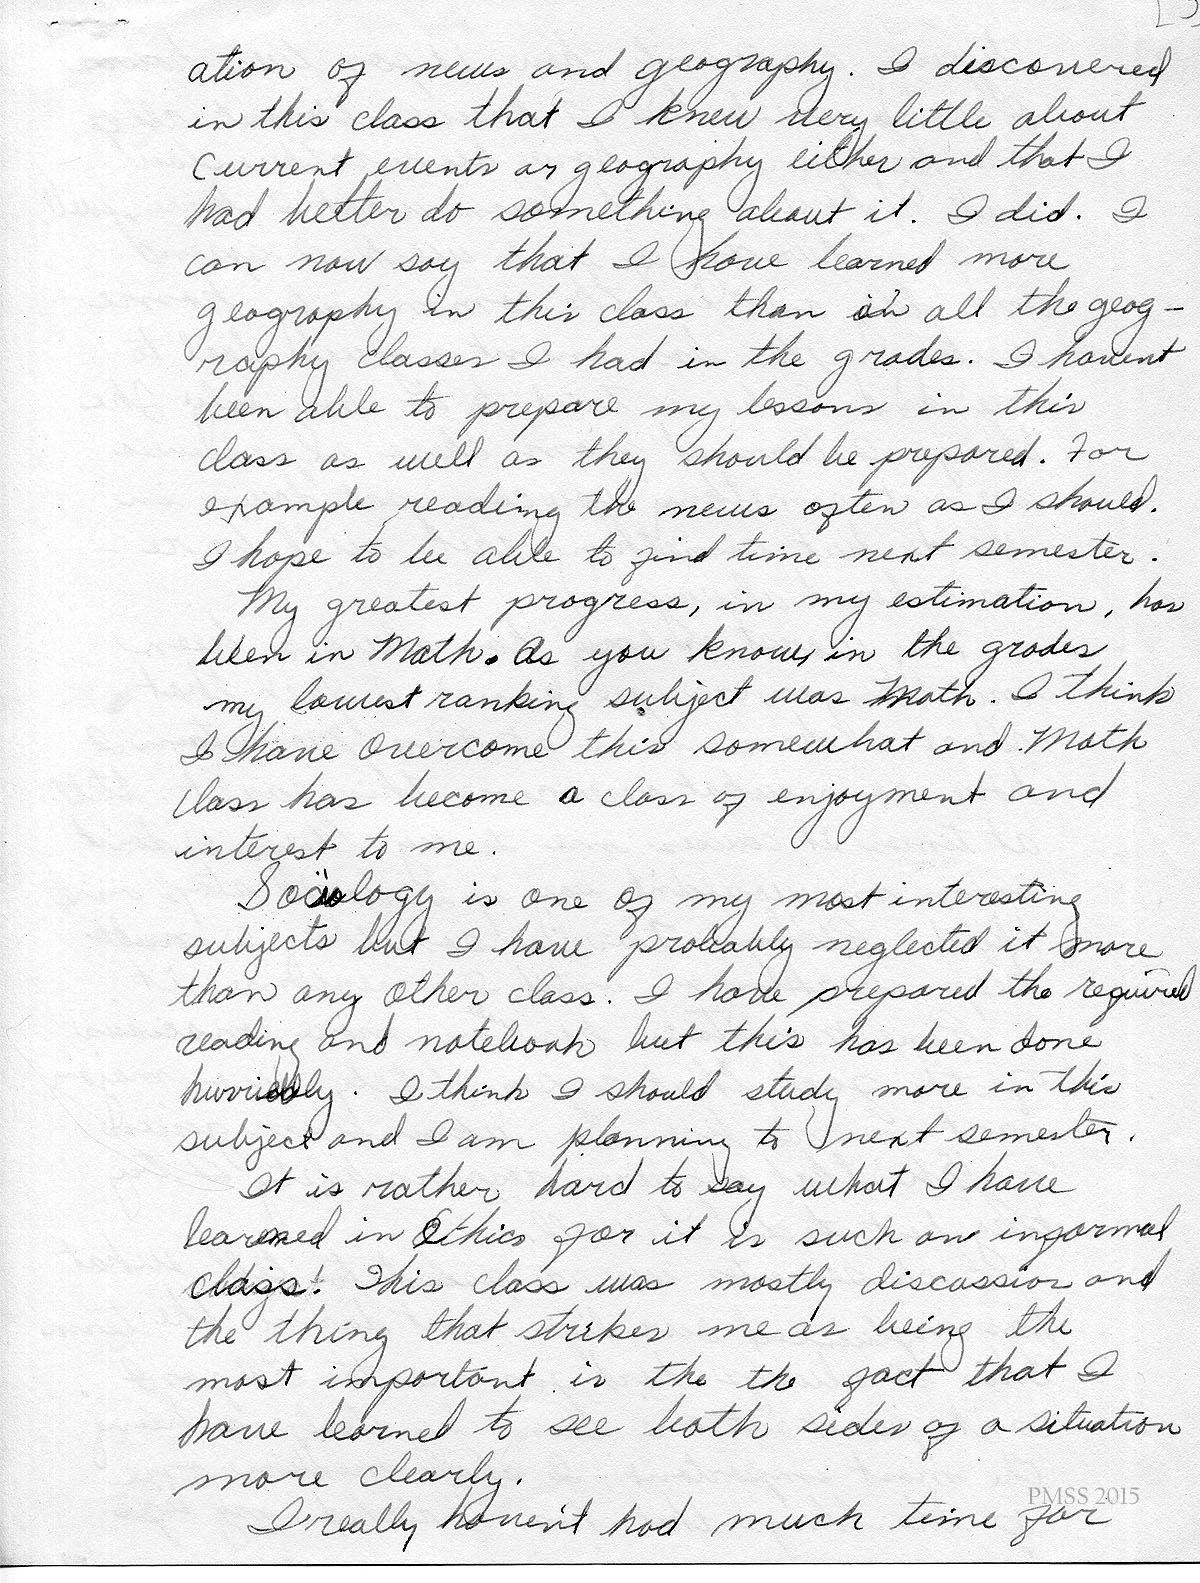 ation of news and geography. I discovered
in this class that I knew very little about
current events or geography either and that I
had better do something about it. I did. I
can now say that I have learned more
geography in this class than in all the geog-
raphy classes I had in the grades. I havent
been able to prepare my lessons in this
class as well as they should be prepared. For
example reading the news often as I should.
I hope to be able to find time next semester.
My greatest progress, in my estimation, has
been in Math. As you know, in the grades
my lowest ranking subject was Math. I think
I have overcome this somewhat and Math
class has become a class of enjoyment and
interest to me.
Sociology is one of my most interesting
subjects but I have probably neglected it more
than any other class. I have prepared the required
reading and notebook but this has been done
hurriedly. I think I should study more in this
subject and I am planning to next semester.
It is rather hard to say what I have
learned in Ethics for it is such an informal
class. This class was mostly discussion and
the thing that strikes me as being the
most important is the the fact that I
have learned to see both sides of a situation
more clearly.
I really haven't had much time for
PMSS 2015